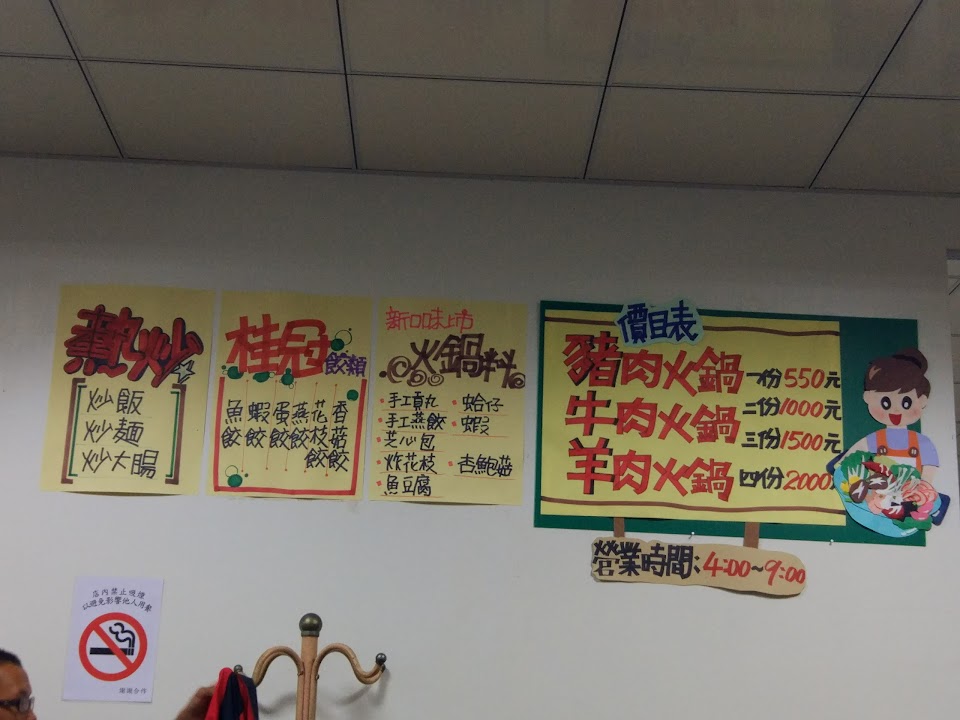 熱炒
炒飯
炒麵
炒大腸
桂冠
餃類
魚餃
蝦餃
蛋餃
燕餃
花枝餃
香菇餃
新口味上市
火鍋料
手工貢丸
手工燕餃
芝心包
炸花枝
魚豆腐
蛤仔
蝦
杏鮑菇
價目表
豬肉火鍋
牛肉火鍋
羊肉火鍋
一份550元
二份1000元
三份1500元
四份2000
營業時間:4:00~9:00
店內禁止吸煙
以避免影響他人用餐
謝謝合作